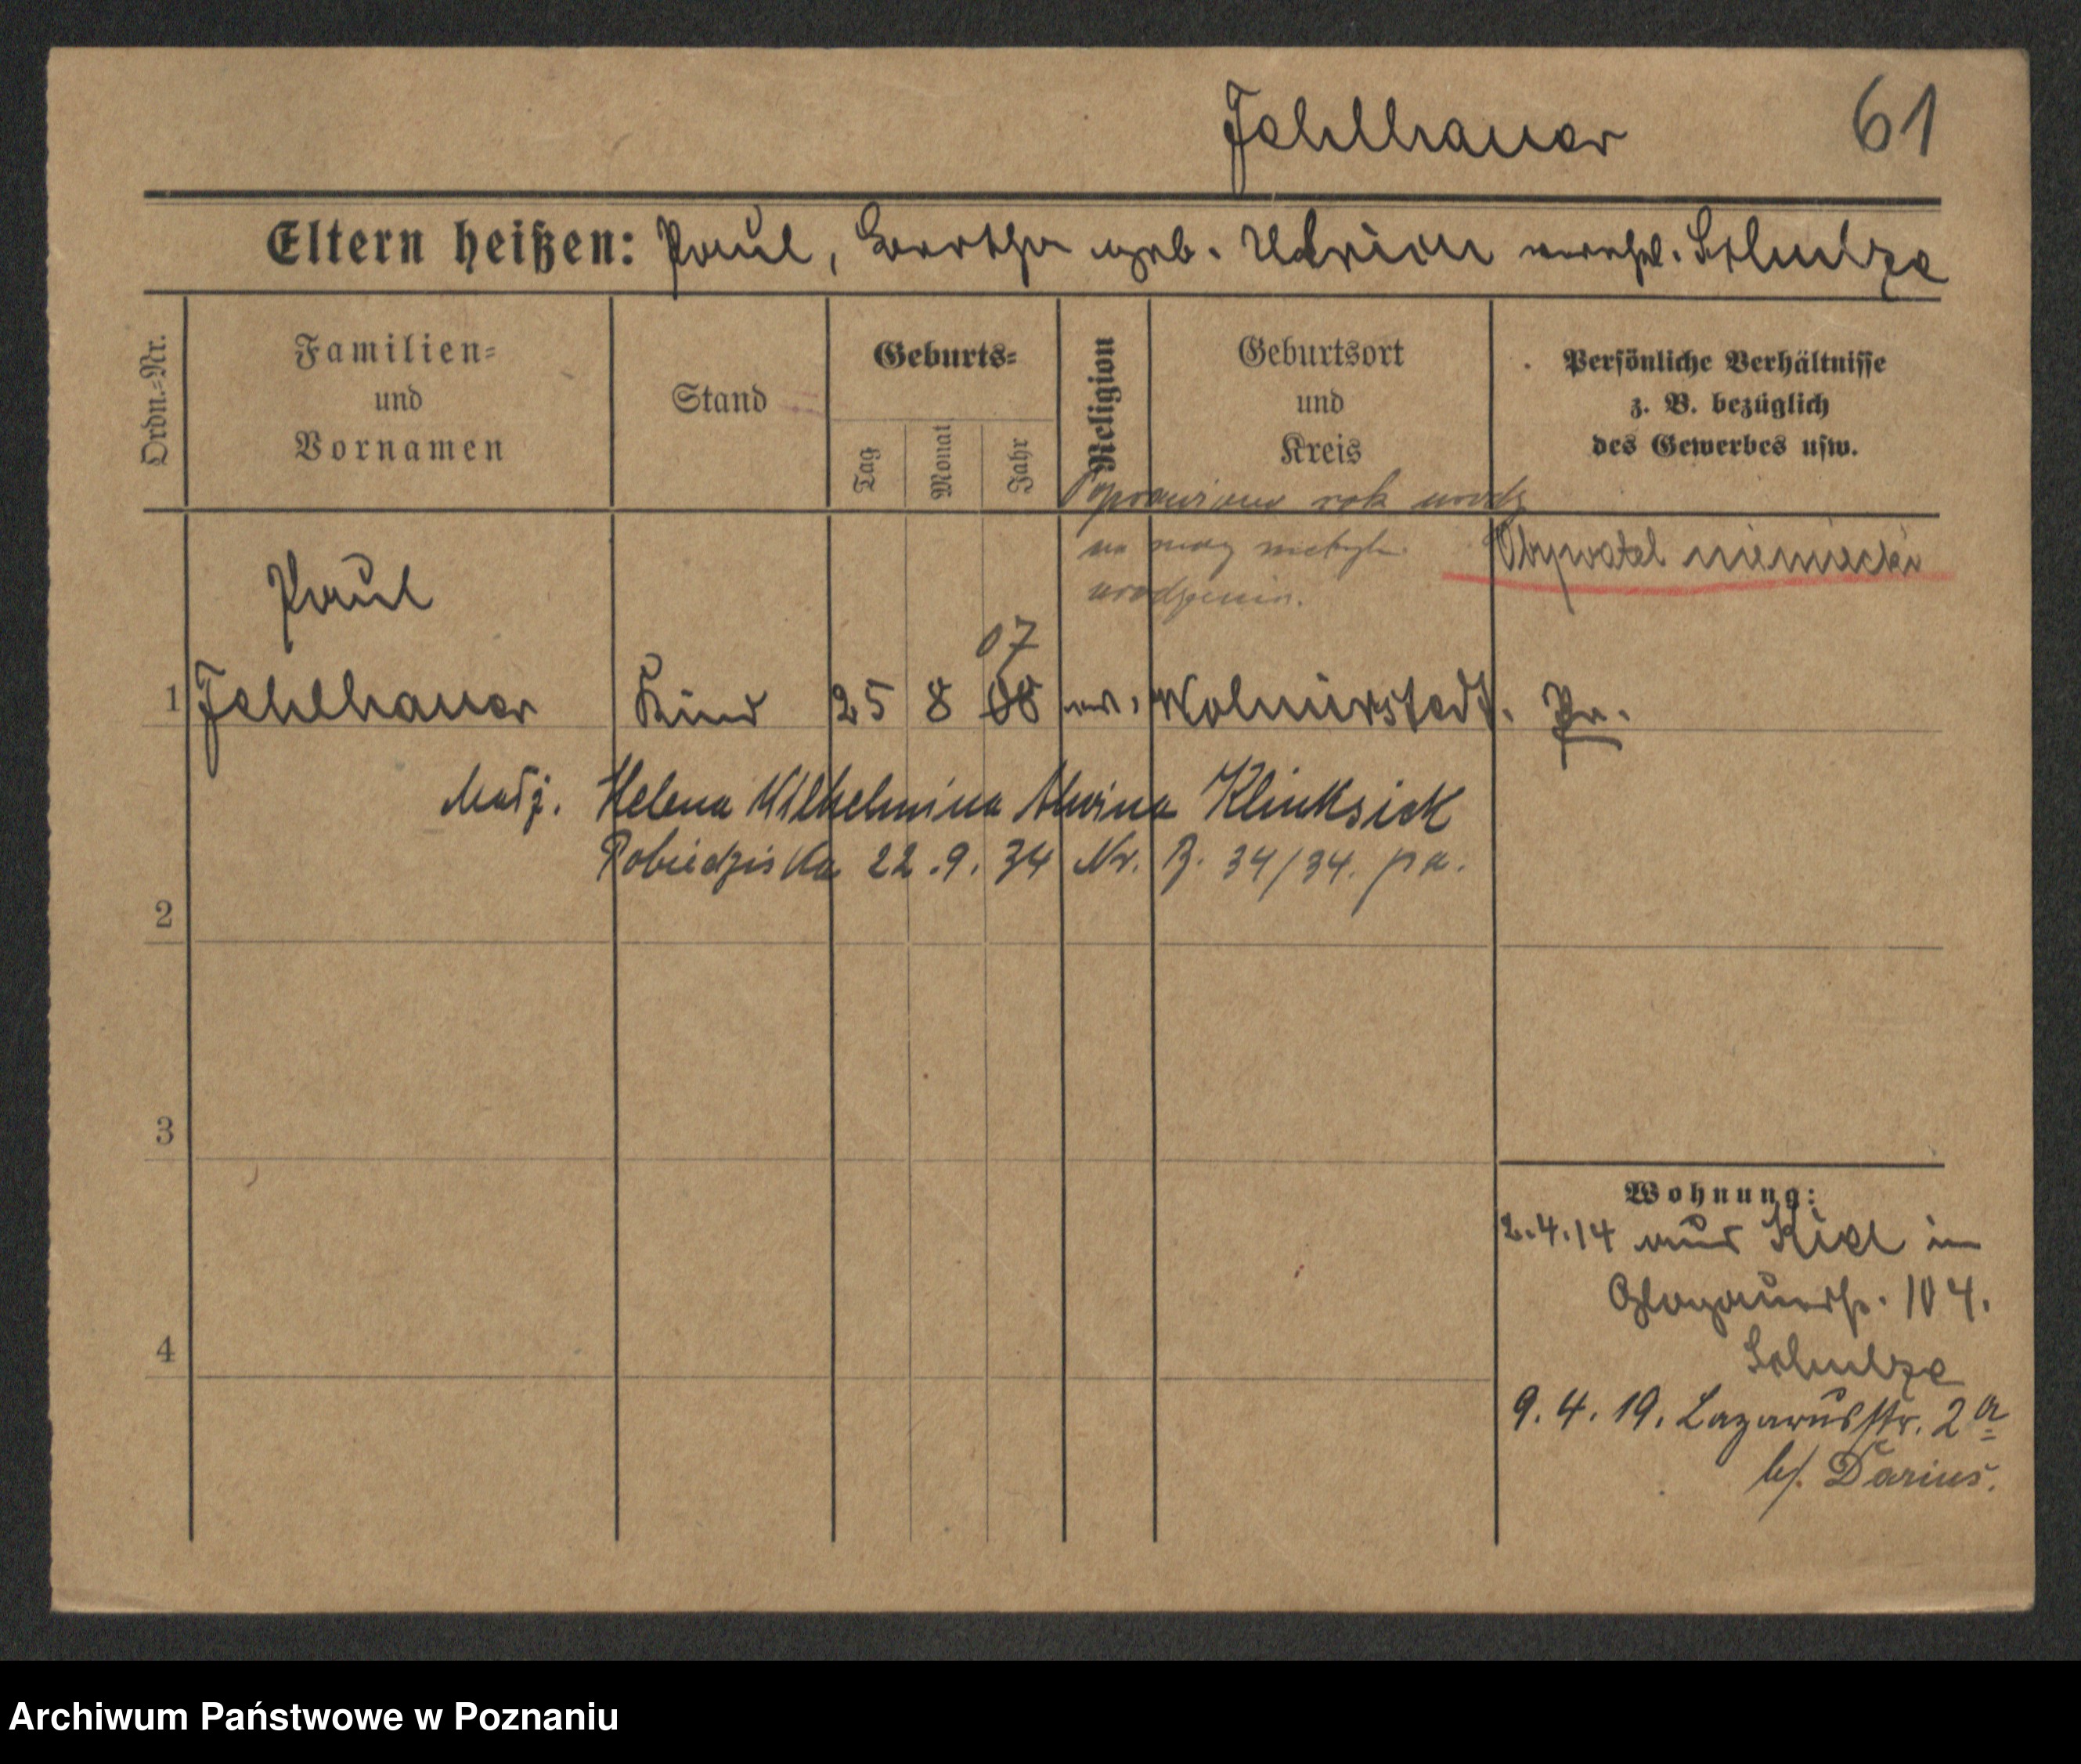 Fehlhauer 61
Eltern heißen: Paul, Bertha geb. Utrion verehl. Schulze
Ordn.-Nr.
Familien- und Vornamen
Stand
Geburts-
Tag
Monat
Jahr
Religion
Geburtsort und Kreis
Persönliche Verhältnisse
z. B. bezüglich
des Gewerbes usw.
Poprawiono rok urodz
na mocy metryki
urodzenia.
Obywatel niemiecki
Paul
07
1 Fehlhauer Kind 25 8 08 ev. Wolmirstedt. Pr.
Małż. Helena Wilhelmina Alwina Klinksiek
Pobiedziska 22.9.34 Nr. 34/34.
2
3
4
Wohnung:
2.4.14 aus Kiel in
Glogauerstr. 104.
Schulze
9.4.19. Lazarusstr. 2a
b/. Darius.
Archiwum Państwowe w Poznaniu